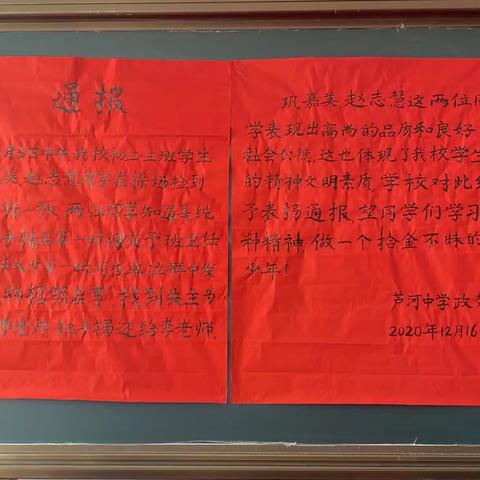 通报
日中午我校初三三班学生
美 赵志慧同学在操场捡到
镯一枚,两位同学知道是纯
手镯后第一时间交予班主任
第一时间在单位群中发
物招领启事,找到失主为
李老师,把手镯还给李老师.
巩嘉美.赵志慧这两位同
学表现出高尚的品质和良好
社会公德.这也体现了我校学生
的精神文明素质.学校对此给
予表扬通报.望同学们学习
种精神,做一个拾金不昧的
少年!
芦河中学政
2020年12月16